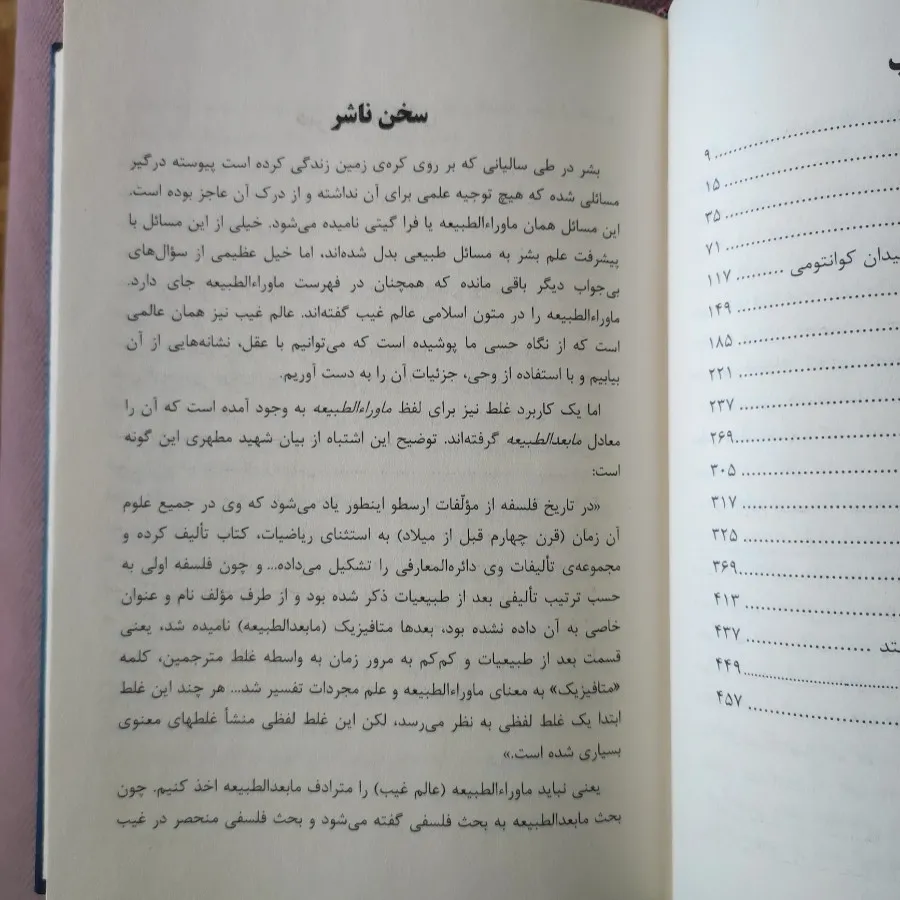 سخن ناشر
بشر در طی سالیانی که بر روی کره‌ی زمین زندگی کرده است پیوسته درگیر
مسائلی شده که هیچ توجیه علمی برای آن نداشته و از درک آن عاجز بوده است.
این مسائل همان ماوراءالطبیعه یا فرا گیتی نامیده می‌شود. خیلی از این مسائل با
پیشرفت علم بشر به مسائل طبیعی بدل شده‌اند، اما خیل عظیمی از سؤال‌های
بی‌جواب دیگر باقی مانده که همچنان در فهرست ماوراءالطبیعه جای دارد.
ماوراءالطبیعه را در متون اسلامی عالم غیب گفته‌اند. عالم غیب نیز همان عالمی
است که از نگاه حسی ما پوشیده است که می‌توانیم با عقل، نشانه‌هایی از آن
بیابیم و با استفاده از وحی، جزئیات آن را به دست آوریم.
اما یک کاربرد غلط نیز برای لفظ ماوراءالطبیعه به وجود آمده است که آن را
معادل مابعدالطبیعه گرفته‌اند. توضیح این اشتباه از بیان شهید مطهری این گونه
است:
«در تاریخ فلسفه از مؤلّفات ارسطو اینطور یاد می‌شود که وی در جمیع علوم
آن زمان (قرن چهارم قبل از میلاد) به استثنای ریاضیات، کتاب تألیف کرده و
مجموعه‌ی تألیفات وی دائره‌المعارفی را تشکیل می‌داده... و چون فلسفه اولی به
حسب ترتیب تألیفی بعد از طبیعیات ذکر شده بود و از طرف مؤلف نام و عنوان
خاصی به آن داده نشده بود، بعدها متافیزیک (مابعدالطبیعه) نامیده شد، یعنی
قسمت بعد از طبیعیات و کم‌کم به مرور زمان به واسطه غلط مترجمین، کلمه
«متافیزیک» به معنای ماوراءالطبیعه و علم مجردات تفسیر شد... هر چند این غلط
ابتدا یک غلط لفظی به نظر می‌رسد، لکن این غلط لفظی منشأ غلطهای معنوی
بسیاری شده است.»
یعنی نباید ماوراءالطبیعه (عالم غیب) را مترادف مابعدالطبیعه اخذ کنیم. چون
بحث مابعدالطبیعه به بحث فلسفی گفته می‌شود و بحث فلسفی منحصر در غیب
۹
۱۵
۳۵
۷۱
کوانتومی ......... ۱۱۷
۱۴۹
۱۸۵
۲۲۱
۲۳۷
۲۶۹
۳۰۵
۳۱۷
۳۲۵
۳۶۹
۴۱۳
۴۳۷
۴۴۹
۴۵۷